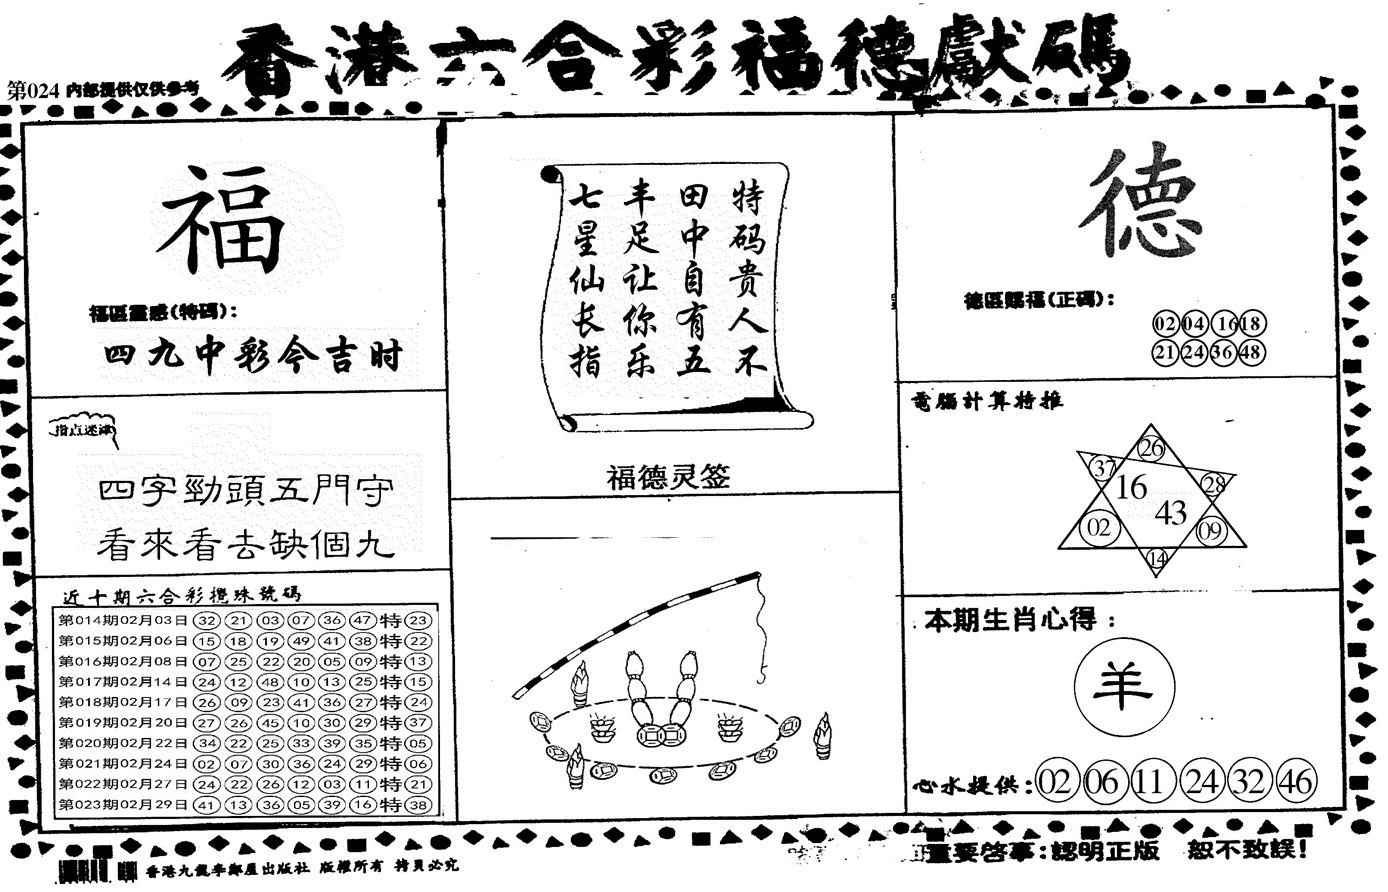 香港六合彩福德獻碼
第024 内部提供仅供参考
福
福區靈感(特碼):
四九中彩今吉时
指点迷津
四字勁頭五門守
看來看去缺個九
近十期六合彩攪珠號碼
第014期02月03日 32 21 03 07 36 47 特 23
第015期02月06日 15 18 19 49 41 38 特 22
第016期02月08日 07 25 22 20 05 09 特 13
第017期02月14日 24 12 48 10 13 25 特 15
第018期02月17日 26 09 23 41 36 27 特 24
第019期02月20日 27 26 45 10 30 29 特 37
第020期02月22日 34 22 25 33 39 35 特 05
第021期02月24日 02 07 30 36 24 29 特 06
第022期02月27日 24 22 26 12 03 11 特 21
第023期02月29日 41 13 36 05 39 16 特 38
特码贵人不
田中自有五
丰足让你乐
七星仙长指
福德灵签
德
德區賜福(正碼):
02 04 16 18
21 24 36 48
電腦計算特推
26
37
16
28
43
02
09
14
本期生肖心得:
羊
心水提供: 02 06 11 24 32 46
重要啓事:認明正版 恕不致誤!
香港九龍李鄭屋出版社 版權所有 拷貝必究